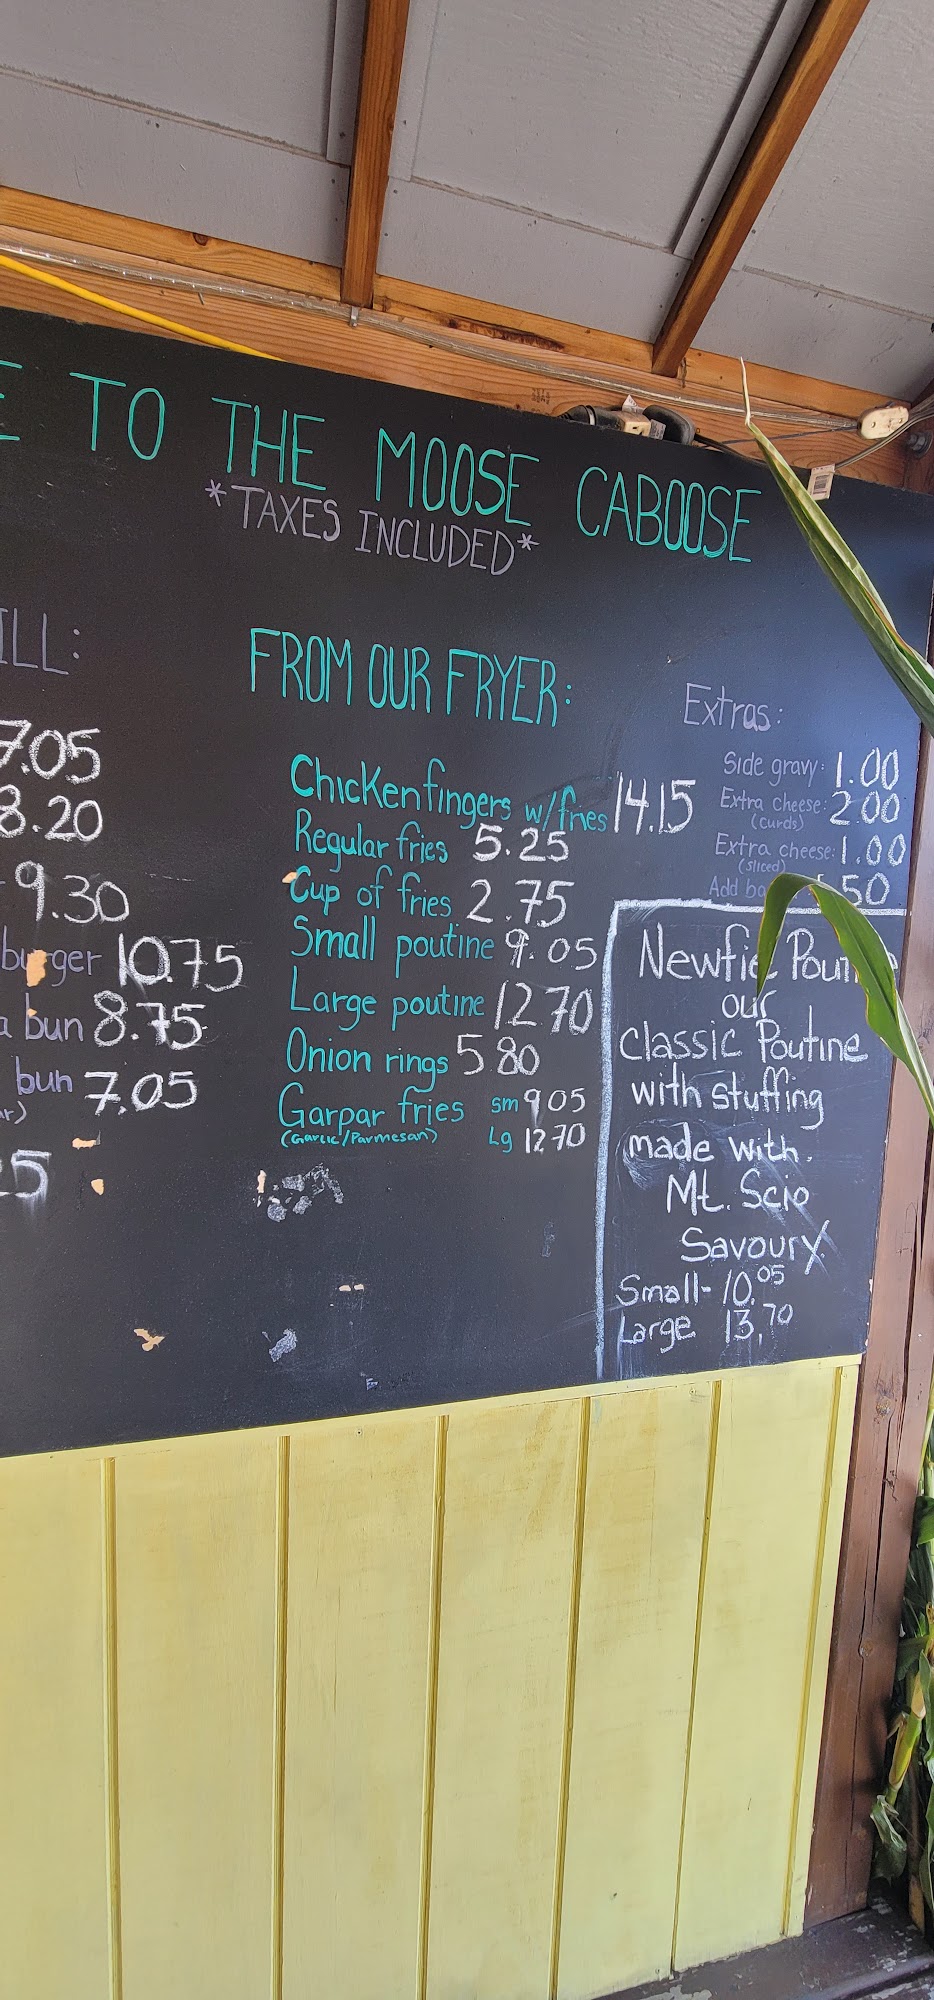 TO THE MOOSE CABOOSE
*TAXES INCLUDED*
ILL:
7.05
8.20
9.30
burger 10.75
bun 8.75
bun 7.05
FROM OUR FRYER:
Chicken fingers w/fries 14.15
Regular fries 5.25
Cup of fries 2.75
Small poutine 9.05
Large poutine 12.70
Onion rings 5.80
Garpar fries sm 9.05
(Garlic/Parmesan) Lg 12.70
Extras:
Side gravy: 1.00
Extra cheese: 2.00
(curds)
Extra cheese: 1.00
(sliced)
Add 50
Newfie
our
Classic Poutine
with stuffing
made with.
Mt. Scio
Savoury
Small- 10.05
Large 13.70